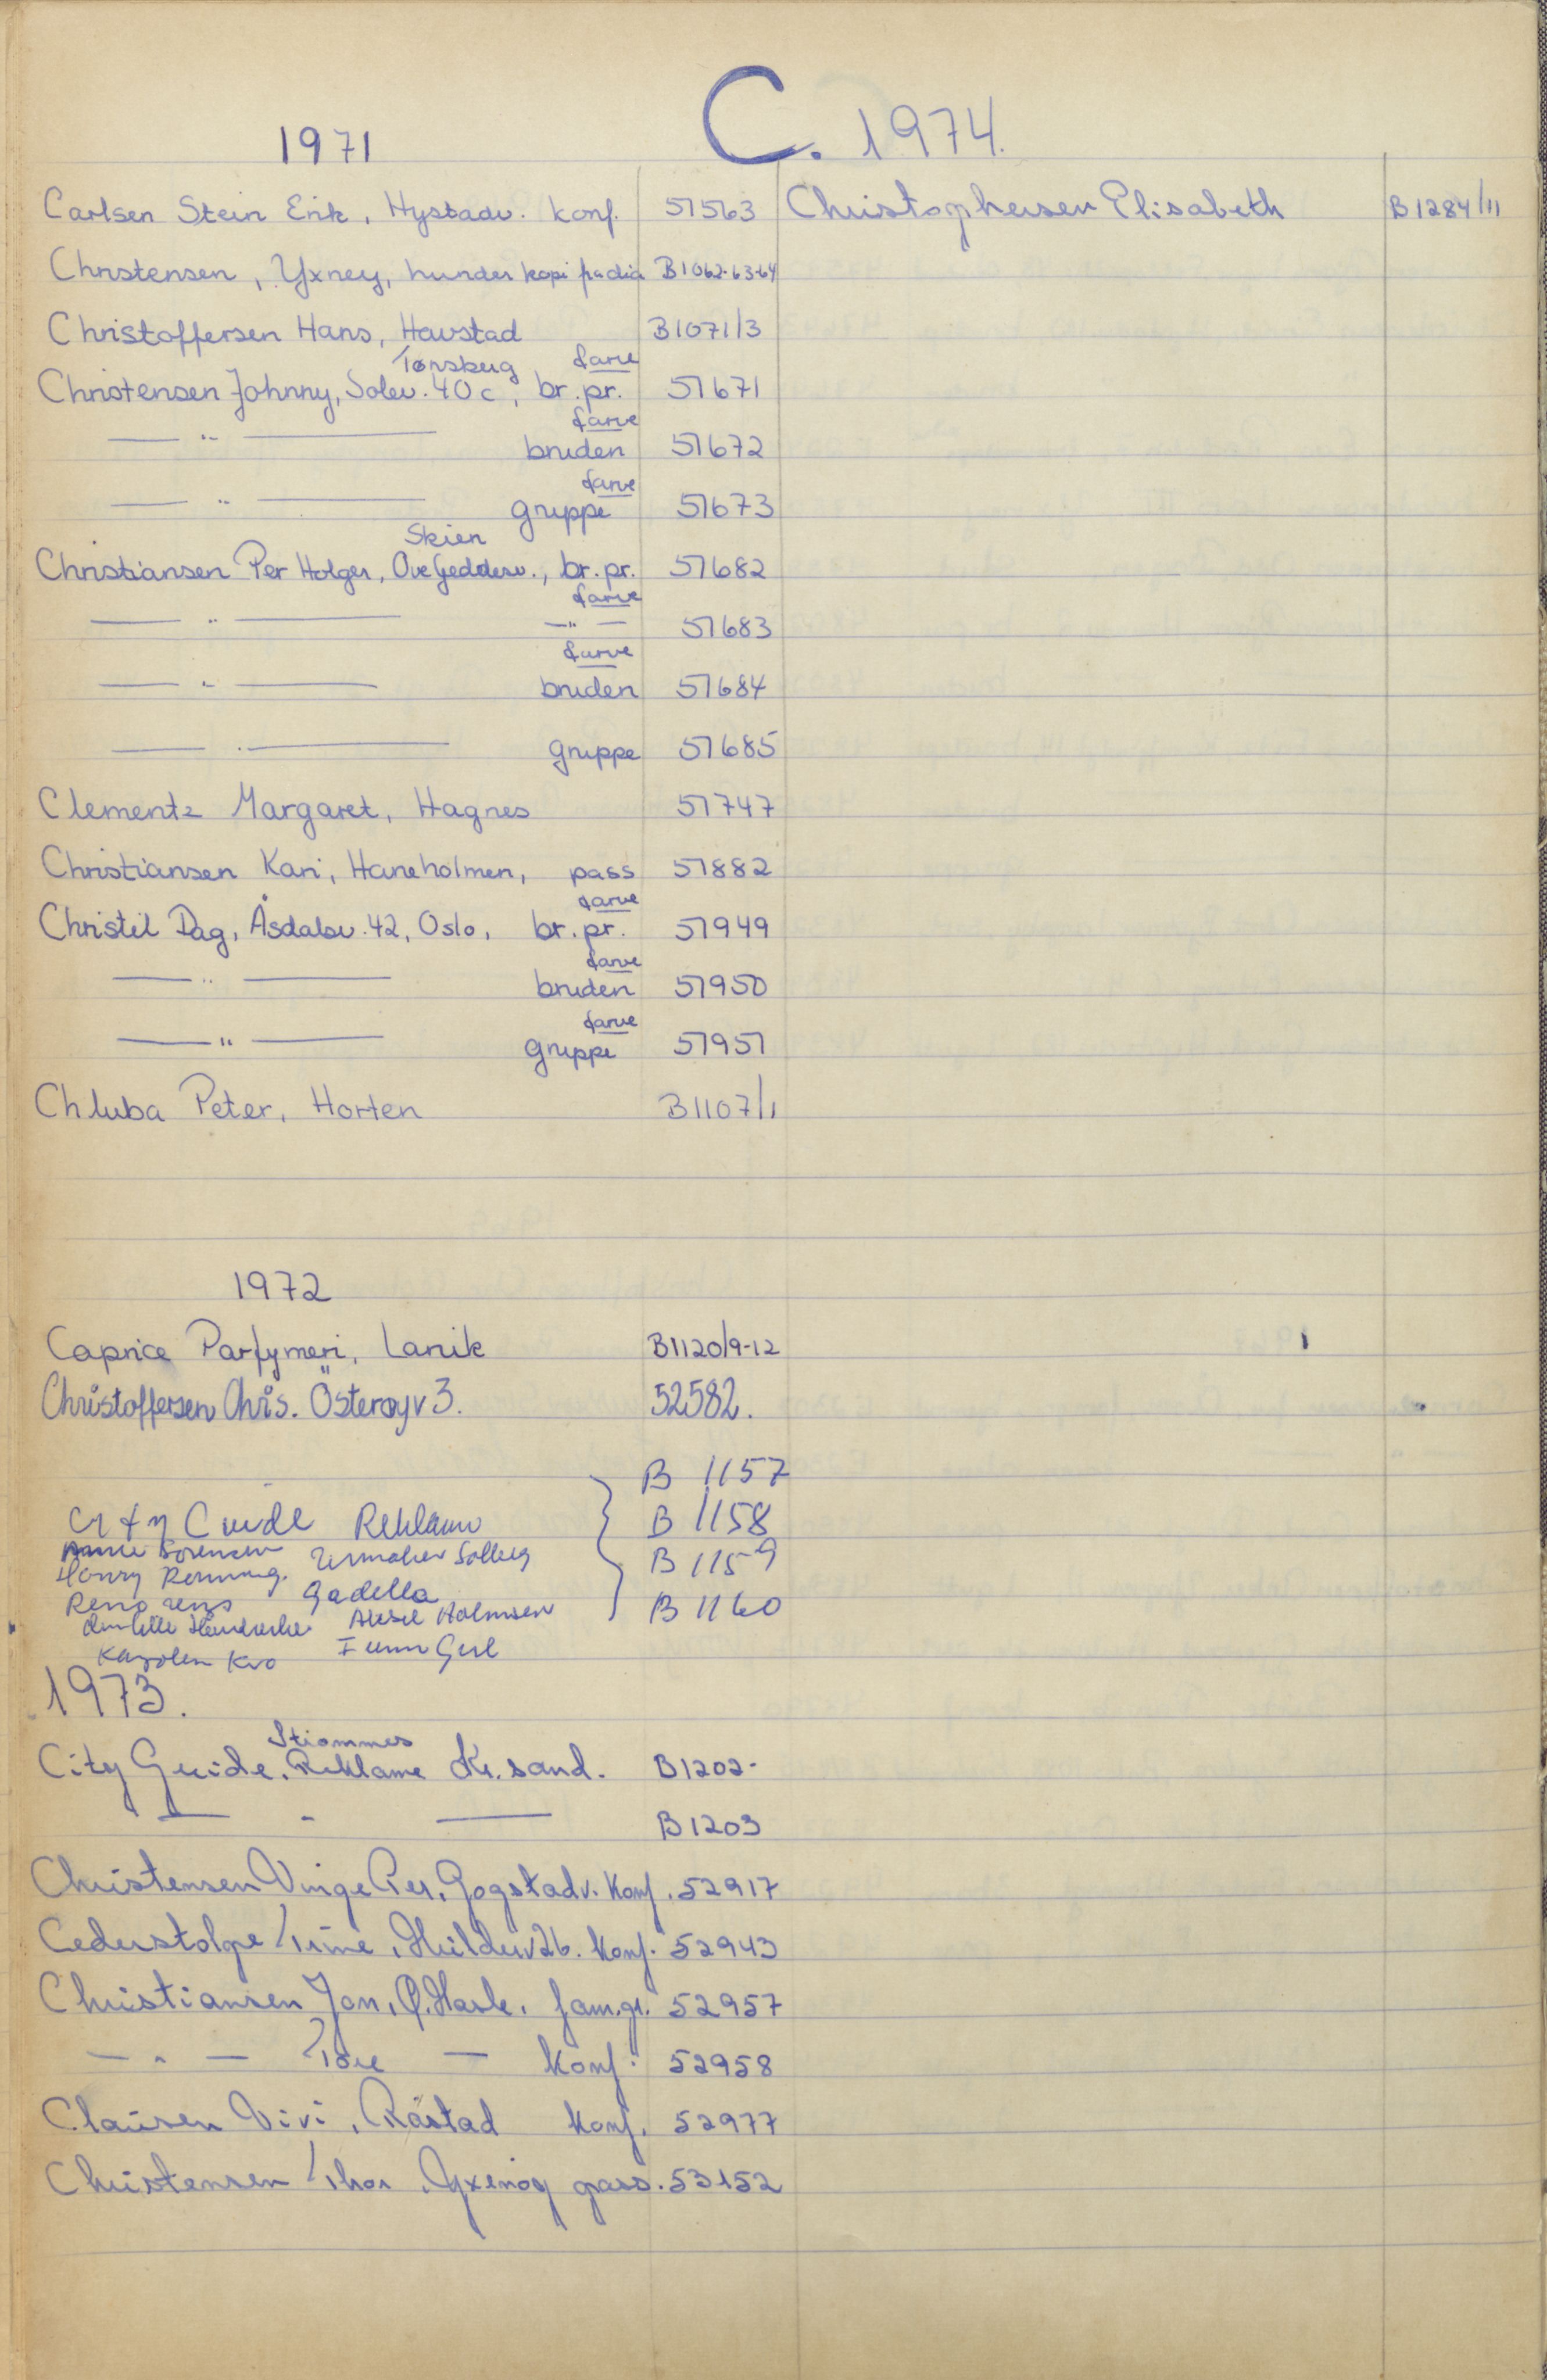 C.
1971
Carlsen Stein Erik, Nystadv. konf. 51563
Christensen, Yxney, hunder kopi fradia B1062-63-64
Christoffersen Hans, Haustad B1071/3
Tønsberg farve
Christensen Johnny, Solev. 40c, br.pr. 51671
farve
— " — bruden 51672
farve
— " — gruppe 51673
Skien
Christiansen Per Holger, Ove Geddesv., br.pr. 51682
farve
— " — — " — 51683
farve
— " — bruden 51684
— " — gruppe 51685
Clementz Margaret, Hagnes 51747
Christiansen Kari, Haneholmen, pass 51882
farve
Christil Dag, Åsdalsv. 42, Oslo, br.pr. 51949
farve
— " — bruden 51950
farve
— " — gruppe 51951
Chluba Peter, Horten B1107/1
1972
Caprice Parfymeri, Larvik B1120/9-12
Christoffersen Chris. Østerøyv 3. 52582.
B 1157
City Guide Reklame B 1158
Sørensen Solberg B 1159
Henry Rønning.
Reno rens Gadella B 1160
Aksel Holmsen
Karolen Kro
1973.
Strømmes
City Guide, Reklame Kr.sand. B1202-
— " — B1203
Christensen Vinge Per, Gogstadv. Konf. 52917
Cederstolpe Trine, 26. Konf. 52943
Christiansen Jon, Ø. Hasle, fam.gr. 52957
— " — Tore — Konf. 52958
Clausen Vivi, Råstad konf. 52977
Christensen Thor, Yxenøy pass. 53152
1974.
Christophersen Elisabeth B1284/11